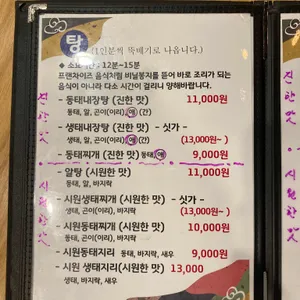 탕 (1인분씩 뚝배기로 나옵니다.)
12분~15분
프랜차이즈 음식처럼 비닐봉지를 뜯어 바로 조리가 되는
음식이 아니라 다소 시간이 걸리니 양해바랍니다.
- 동태내장탕 (진한 맛) 11,000원
동태, 알, 곤이(이리), 애 (간)
- 생태내장탕 (진한 맛) - 싯가 -
생태, 알, 곤이(이리), 애 (간) (13,000원~ )
- 동태찌개 (진한 맛) 동태 애 9,000원
- 알탕 (시원한 맛) 11,000원
알, 곤이(이리), 바지락
- 시원생태찌개 (시원한 맛) - 싯가 -
생태, 곤이(이리), 바지락 (13,000원~ )
- 시원동태찌개 (시원한 맛) 10,000원
동태, 곤이(이리), 바지락
- 시원동태지리 동태, 바지락, 새우 9,000원
- 시원 생태지리(시원한 맛) 13,000
생태, 바지락, 새우